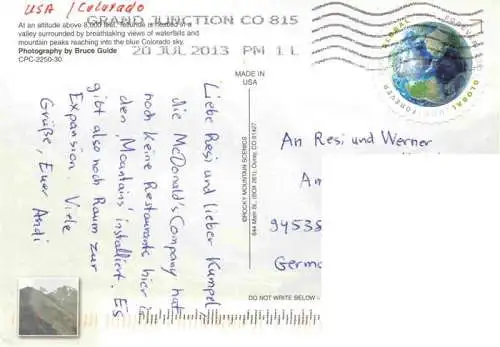 USA / Colorado
GRAND JUNCTION CO 815
20 JUL 2013 PM 1 L
At an altitude above 8,000 feet, Telluride is nestled in a
valley surrounded by breathtaking views of waterfalls and
mountain peaks reaching into the blue Colorado sky.
Photography by Bruce Gulde
CPC-2250-30
Liebe Resi und lieber Kumpel,
die McDonald's Company hat
noch keine Restaurante hier in
den "Mountains" installiert. Es
gibt also noch Raum zur
Expansion. Viele
Grüße, Euer Andi
MADE IN
USA
©ROCKY MOUNTAIN SCENICS
DO NOT WRITE BELOW
GLOBAL
FOREVER
GLOBAL
An Resi und Werner
An
94538
Germa